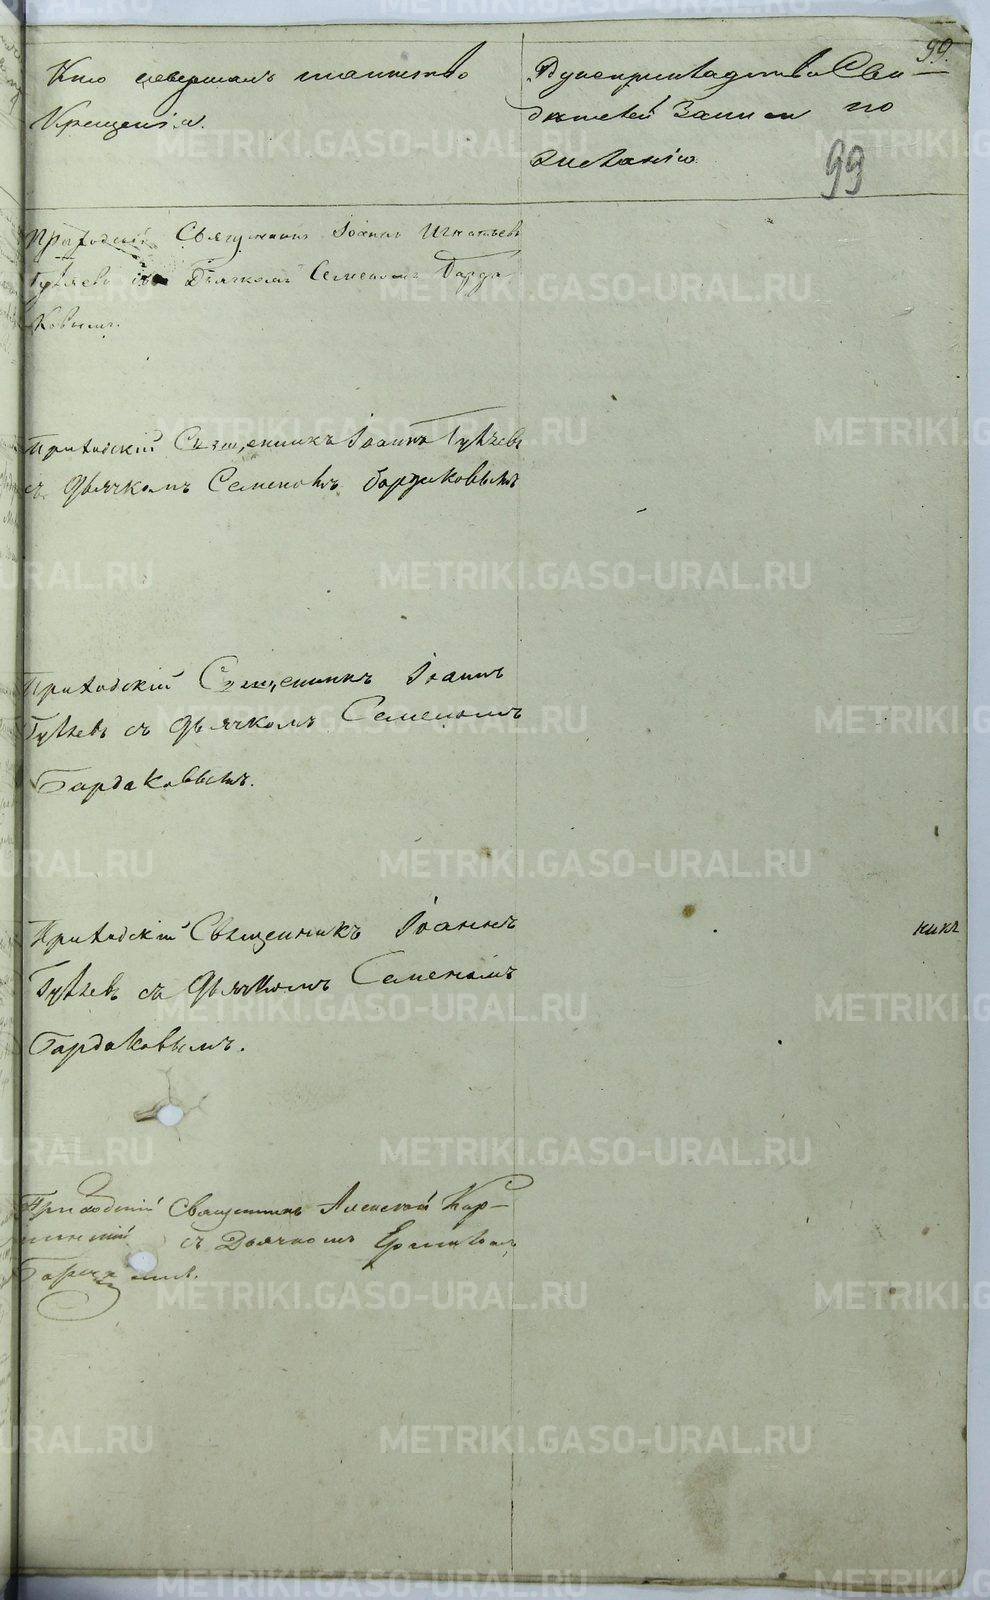 99.
Кто совершалъ таинство
Крещенія.
Рукоприкладство Сви
дѣтелей Записи по
желанію
99
Приходскій Священникъ Іоаннъ Игнатьевъ
Гуляевъ съ Дьячкомъ Семеномъ Барда
ковымъ.
Приходскій Священникъ Іоаннъ Гуляевъ
съ Дьячкомъ Семеномъ Бардаковымъ
Приходскій Священникъ Іоаннъ
Гуляевъ съ Дьячкомъ Семеномъ
Бардаковымъ.
Приходскій Священникъ Іоаннъ
Гуляевъ съ Дьячкомъ Семеномъ
Бардаковымъ.
никъ
Приходскій Священникъ Алексѣй Кор-
съ Дьячкомъ
METRIKI.GASO-URAL.RU